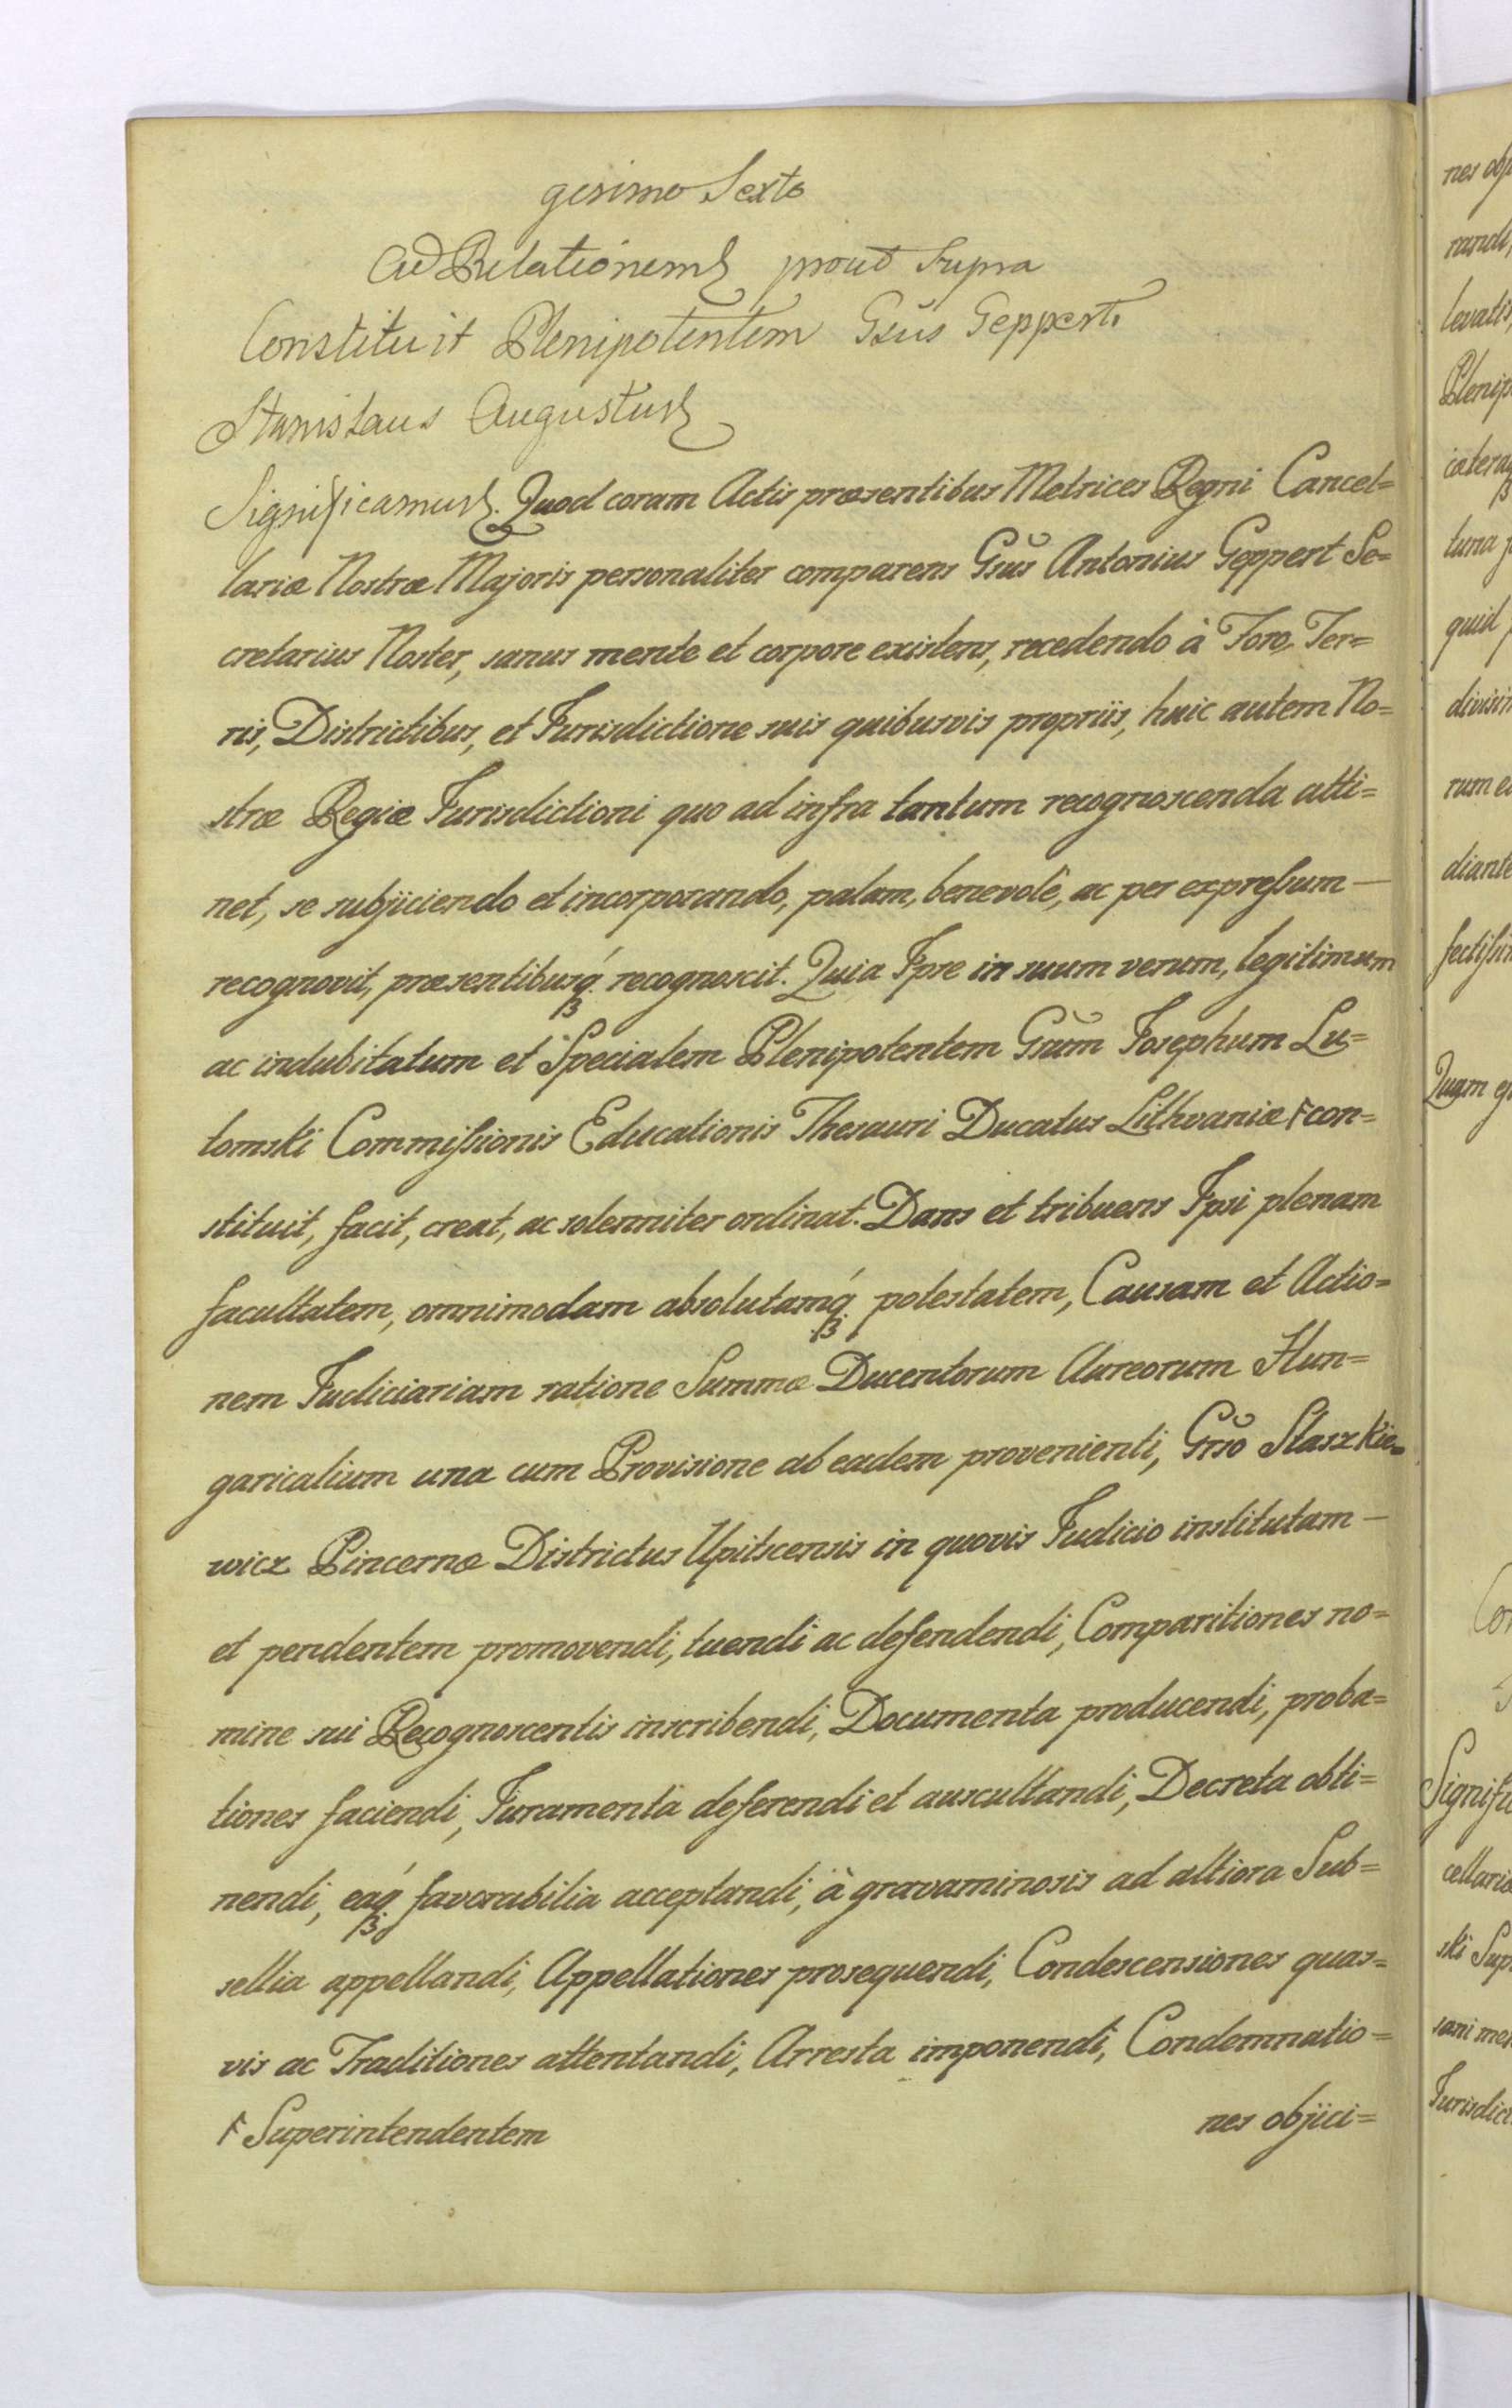 gesimo Sexto
Ad Relationem prout Supra
Constituit Plenipotentem Gsus Geppert.
Stanislaus Augustus
Significamus. Quod coram Actis præsentibus Metrices Regni Cancel=
lariæ Nostræ Majoris personaliter comparens Gsus Antonius Geppert Se=
cretarius Noster, sanus mente et corpore existens, recedendo à Foro, Ter=
ris, Districtibus, et Jurisdictione suis quibusvis propriis, huic autem No=
stræ Regiæ Jurisdictioni quo ad infra tantum recognoscenda atti=
net, se subjiciendo et incorporando, palam, benevolè, ac per expressum —
recognovit, præsentibusq́ recognoscit. Quia Ipse in suum verum, legitimum
ac indubitatum et Specialem Plenipotentem Gsum Josephum Lu=
tomski Commissionis Educationis Thesauri Ducatus Lithvaniæ F con=
stituit, facit, creat, ac solenniter ordinat. Dans et tribuens Ipsi plenam
facultatem, omnimodam absolutamq́ potestatem, Causam et Actio=
nem Judiciariam ratione Summæ Ducentorum Aureorum Hun=
garicalium una cum Provisione ab eadem provenienti, Grso Staszkie=
wicz Pincernæ Districtus Upitscensis in quovis Judicio institutam —
et pendentem promovendi, tuendi ac defendendi, Comparitiones no=
mine sui Recognoscentis inscribendi, Documenta producendi, proba=
tiones faciendi, Juramenta deferendi et auscultandi, Decreta obti=
nendi, eaq́ favorabilia acceptandi, à gravaminosis ad altiora Sub=
sellia appellandi, Appellationes prosequendi, Condescensiones quas=
vis ac Traditiones attentandi, Arresta imponendi, Condemnatio=
F Superintendentem
nes objici=
nes obj
randi,
levatis
Plenip
cæteraq
tura
quid
divisim
rum e
diante
fectissim
Quam
Con
Signific
cellariæ
ski Sup
sani men
Jurisdict